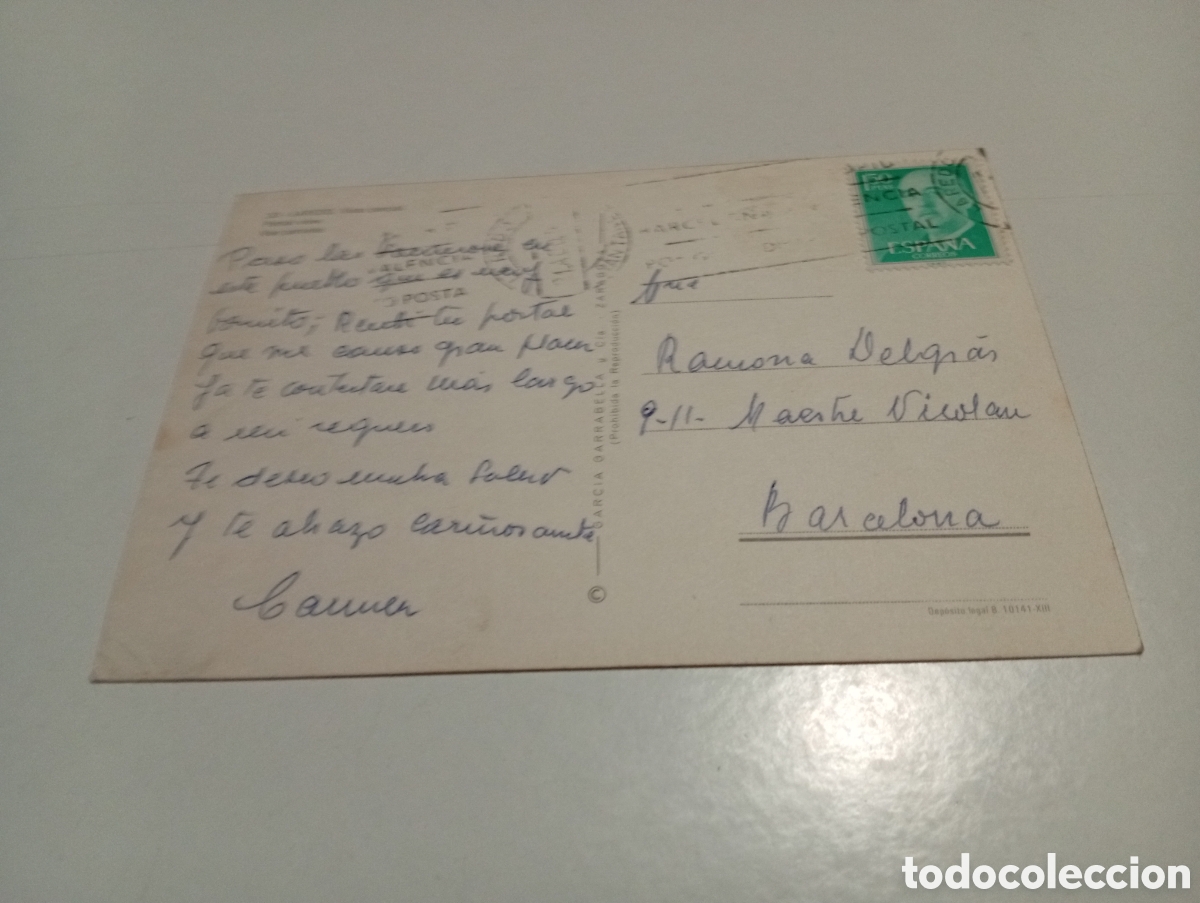 Paso las vacaciones en
este pueblo que es muy
bonito, Recibi tu postal
que me causo gran placer
Ya te contestare más largo
a mi regreso
Te deseo mucha Salud
y te abrazo cariñosamte
Carmen
VALENCIA
POSTA
© GARCIA GARRABELLA y Cia. ZARAGOZA
(Prohibida la Reproducción)
POSTAL
ESPAÑA
CORREOS
Ramona Delgrás
9-11- Maestre Nicolau
Barcelona
Depósito legal B. 10141-XIII
todocoleccion